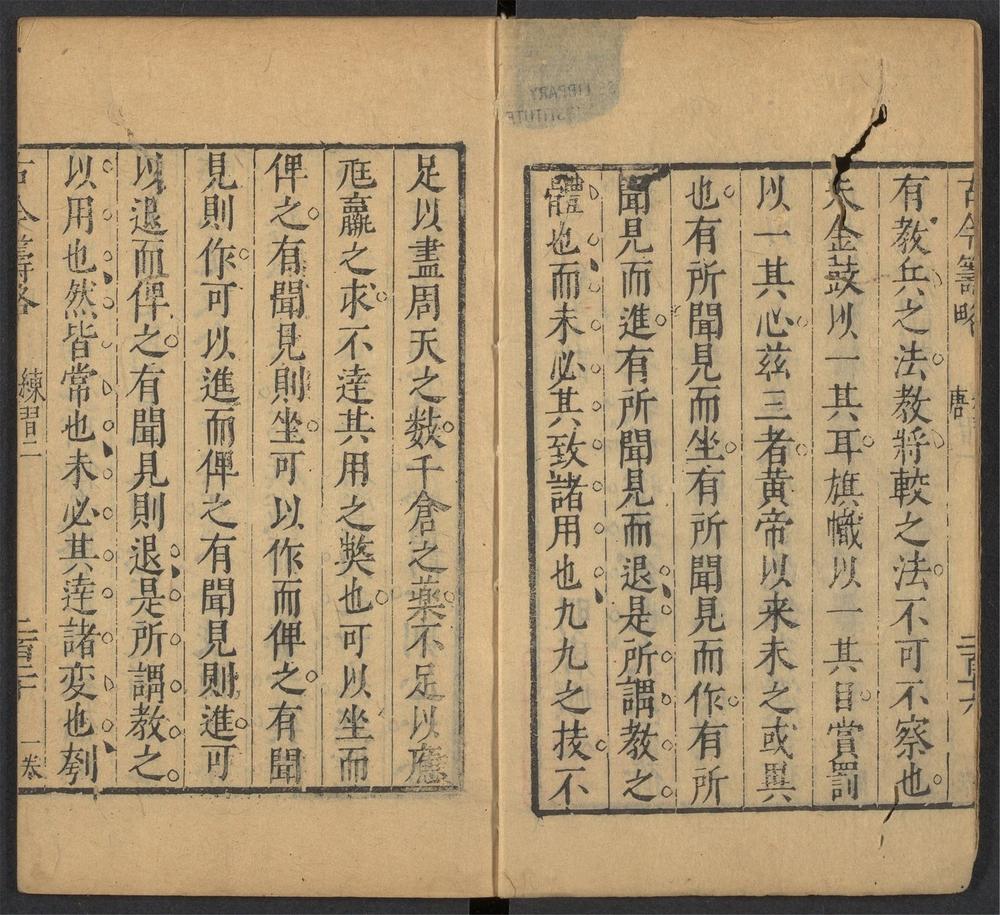 古今籌略
唐
有教兵之法教將較之法不可不察也
夫金鼓以一其耳旗幟以一其目賞罰
以一其心茲三者黃帝以来未之或異
也有所聞見而坐有所聞見而作有所
聞見而進有所聞見而退是所謂教之
體也而未必其致諸用也九九之技不
足以盡周天之数千倉之藥不足以應
尫羸之求不達其用之獘也可以坐而
俾之有聞見則坐可以作而俾之有聞
見則作可以進而俾之有聞見則進可
以退而俾之有聞見則退是所謂教之
以用也然皆常也未必其達諸変也剡
古今籌略
練習二
一卷